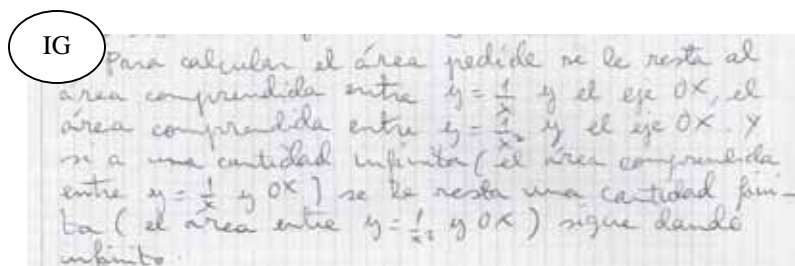 IG
Para calcular el área pedida se le resta al
área comprendida entre y = 1/x y el eje OX, el
área comprendida entre y = 1/x² y el eje OX. Y
si a una cantidad infinita (el área comprendida
entre y = 1/x y OX) se le resta una cantidad fini-
ta (el área entre y = 1/x² y OX) sigue dando
infinito.